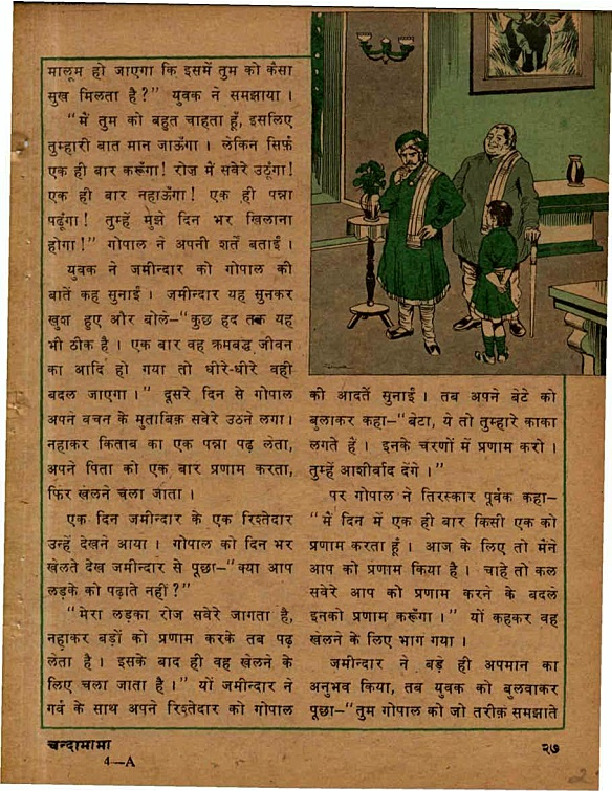 मालूम हो जाएगा कि इसमें तुम को कैसा
सुख मिलता है?" युवक ने समझाया ।
"मैं तुम को बहुत चाहता हूँ, इसलिए
तुम्हारी बात मान जाऊँगा । लेकिन सिर्फ़
एक ही बार करूँगा! रोज मैं सवेरे उठूंगा!
एक ही बार नहाऊँगा! एक ही पन्ना
पढ़ूंगा! तुम्हें मुझे दिन भर खिलाना
होगा!" गोपाल ने अपनी शर्तें बताई ।
युवक ने जमीन्दार को गोपाल की
बातें कह सुनाईं । जमीन्दार यह सुनकर
खुश हुए और बोले–"कुछ हद तक यह
भी ठीक है । एक बार वह क्रमबद्ध जीवन
का आदि हो गया तो धीरे-धीरे वही
बदल जाएगा ।" दूसरे दिन से गोपाल
अपने वचन के मुताबिक़ सवेरे उठने लगा ।
नहाकर किताब का एक पन्ना पढ़ लेता,
अपने पिता को एक बार प्रणाम करता,
फिर खेलने चला जाता ।
एक दिन जमीन्दार के एक रिश्तेदार
उन्हें देखने आया । गोपाल को दिन भर
खेलते देख जमीन्दार से पूछा–"क्या आप
लड़के को पढ़ाते नहीं?"
"मेरा लड़का रोज सवेरे जागता है,
नहाकर बड़ों को प्रणाम करके तब पढ़
लेता है । इसके बाद ही वह खेलने के
लिए चला जाता है ।" यों जमीन्दार ने
गर्व के साथ अपने रिश्तेदार को गोपाल
की आदतें सुनाईं । तब अपने बेटे को
बुलाकर कहा–"बेटा, ये तो तुम्हारे काका
लगते हैं । इनके चरणों में प्रणाम करो ।
तुम्हें आशीर्वाद देंगे ।"
पर गोपाल ने तिरस्कार पूर्वक कहा–
"मैं दिन में एक ही बार किसी एक को
प्रणाम करता हूँ । आज के लिए तो मैंने
आप को प्रणाम किया है । चाहे तो कल
सवेरे आप को प्रणाम करने के बदले
इनको प्रणाम करूँगा ।" यों कहकर वह
खेलने के लिए भाग गया ।
जमीन्दार ने बड़े ही अपमान का
अनुभव किया, तब युवक को बुलवाकर
पूछा–"तुम गोपाल को जो तरीक़ समझाते
चन्दामामा
२७
4—A
2